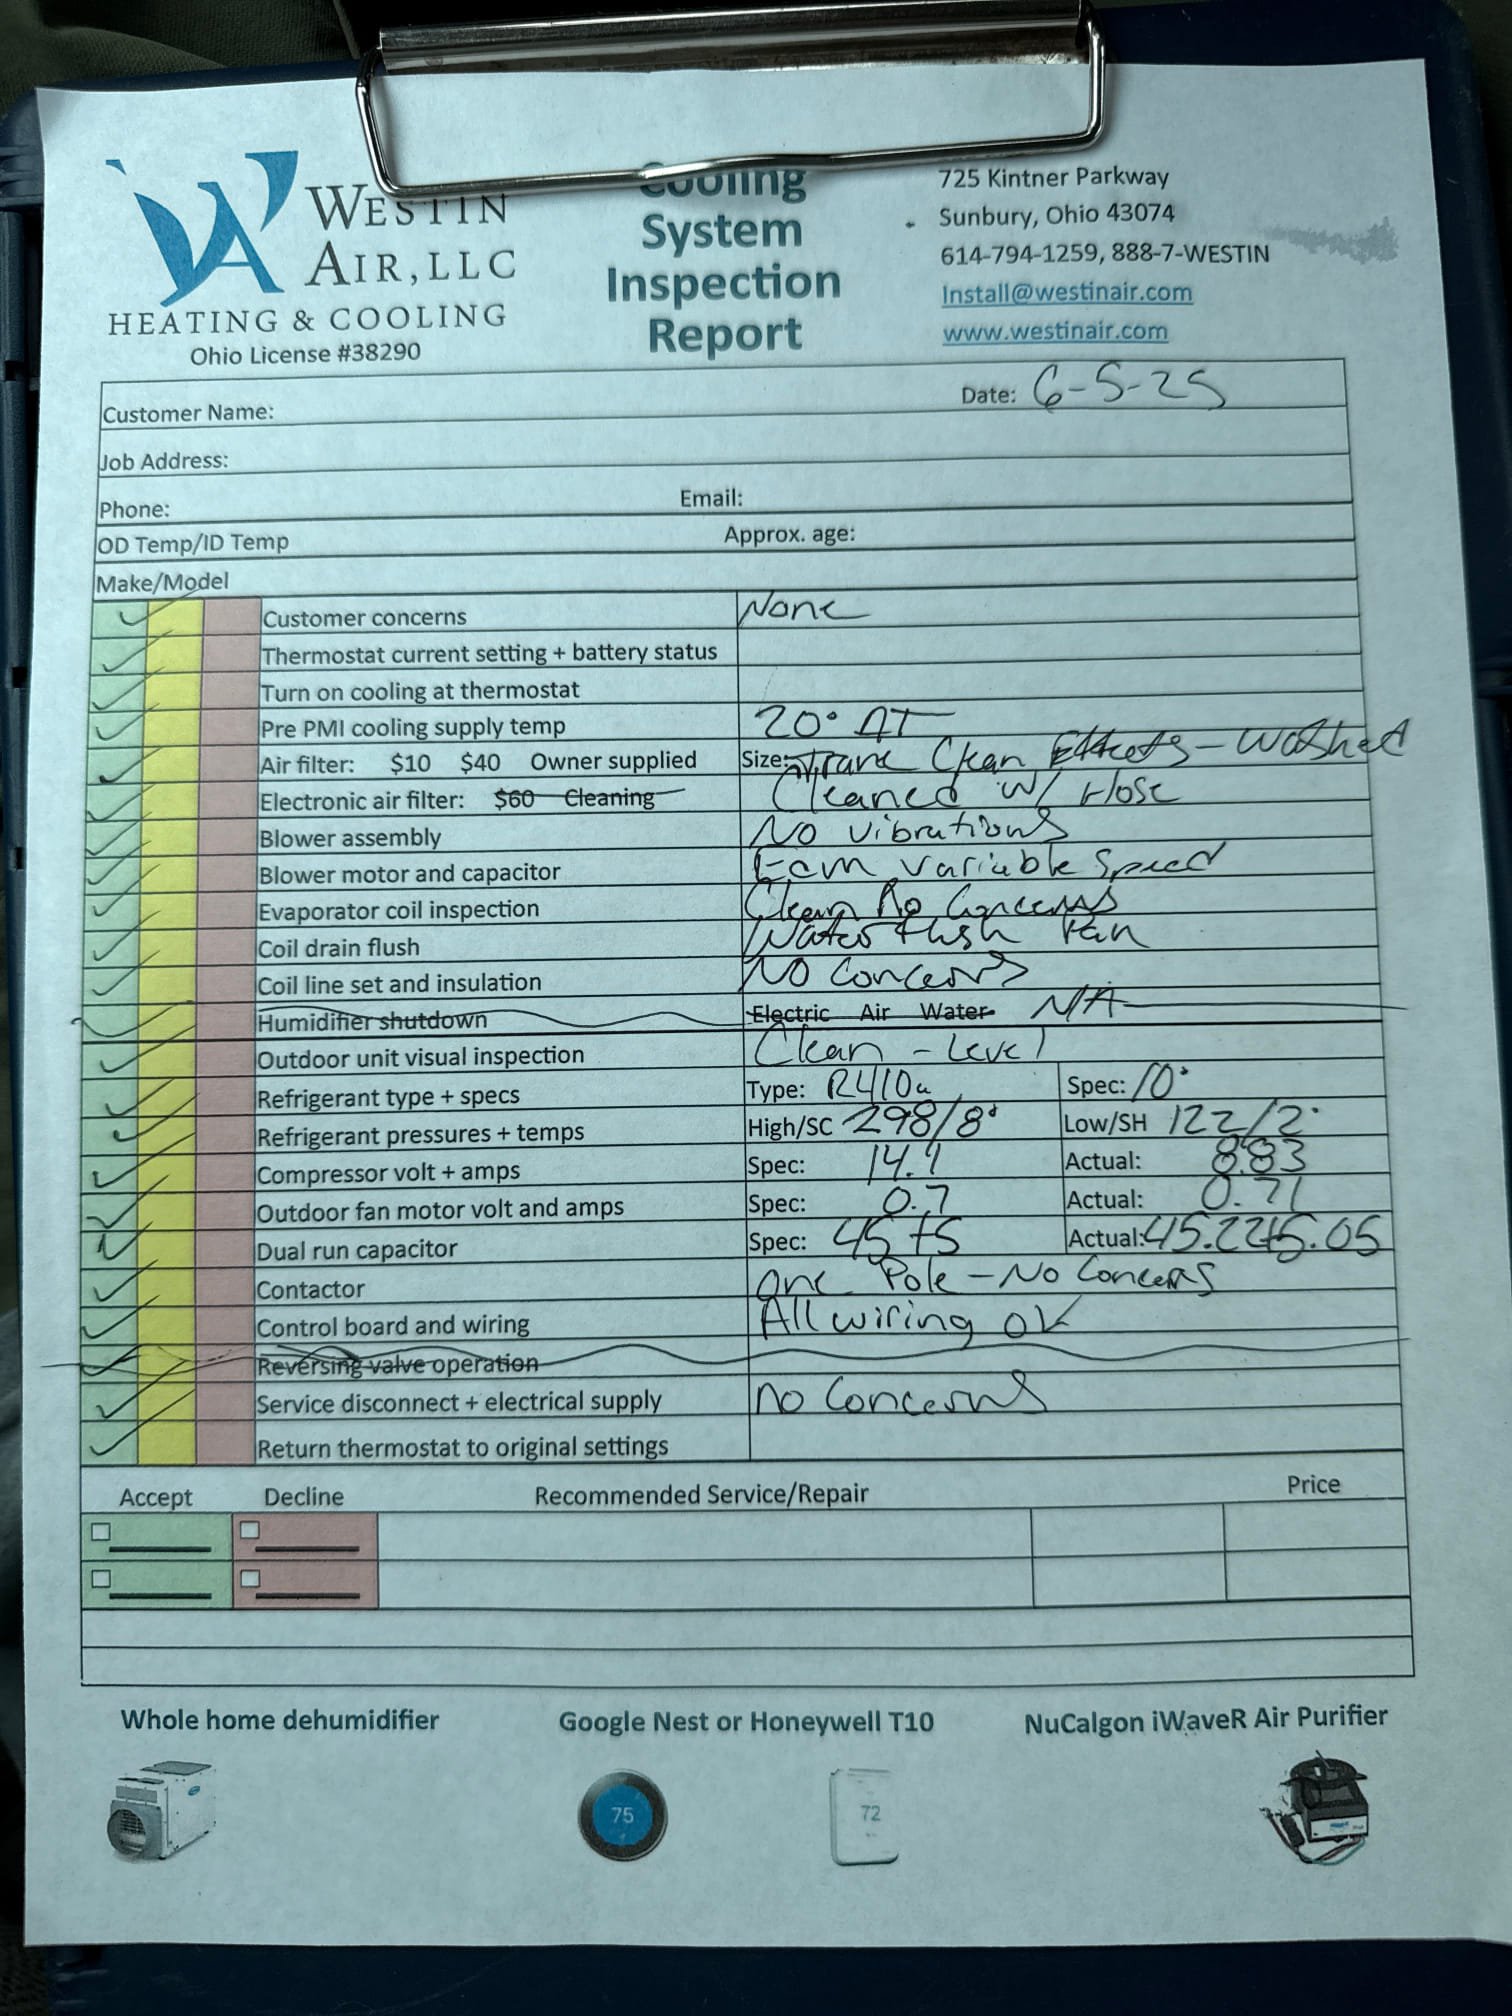 WESTIN
AIR, LLC
HEATING & COOLING
Ohio License #38290
Cooling
System
Inspection
Report
725 Kintner Parkway
Sunbury, Ohio 43074
614-794-1259, 888-7-WESTIN
Install@westinair.com
www.westinair.com
Customer Name: Date: 6-5-25
Job Address:
Phone: Email:
OD Temp/ID Temp Approx. age:
Make/Model
Customer concerns None
Thermostat current setting + battery status
Turn on cooling at thermostat
Pre PMI cooling supply temp 20° ΔT
Air filter: $10 $40 Owner supplied Size: Trane Clean Effects - Washed
Electronic air filter: $60 Cleaning Cleaned w/ Hose
Blower assembly No vibrations
Blower motor and capacitor Ecm variable speed
Evaporator coil inspection Clean No Concerns
Coil drain flush Water flush Pan
Coil line set and insulation No Concerns
Humidifier shutdown Electric Air Water N/A
Outdoor unit visual inspection Clean - Level
Refrigerant type + specs Type: R410a Spec: 10°
Refrigerant pressures + temps High/SC 298/8° Low/SH 122/2°
Compressor volt + amps Spec: 14.1 Actual: 8.83
Outdoor fan motor volt and amps Spec: 0.7 Actual: 0.71
Dual run capacitor Spec: 45+5 Actual: 45.22+5.05
Contactor One Pole - No Concerns
Control board and wiring All wiring OK
Reversing valve operation
Service disconnect + electrical supply No Concerns
Return thermostat to original settings
Accept Decline Recommended Service/Repair Price
Whole home dehumidifier Google Nest or Honeywell T10 NuCalgon iWaveR Air Purifier
75
72